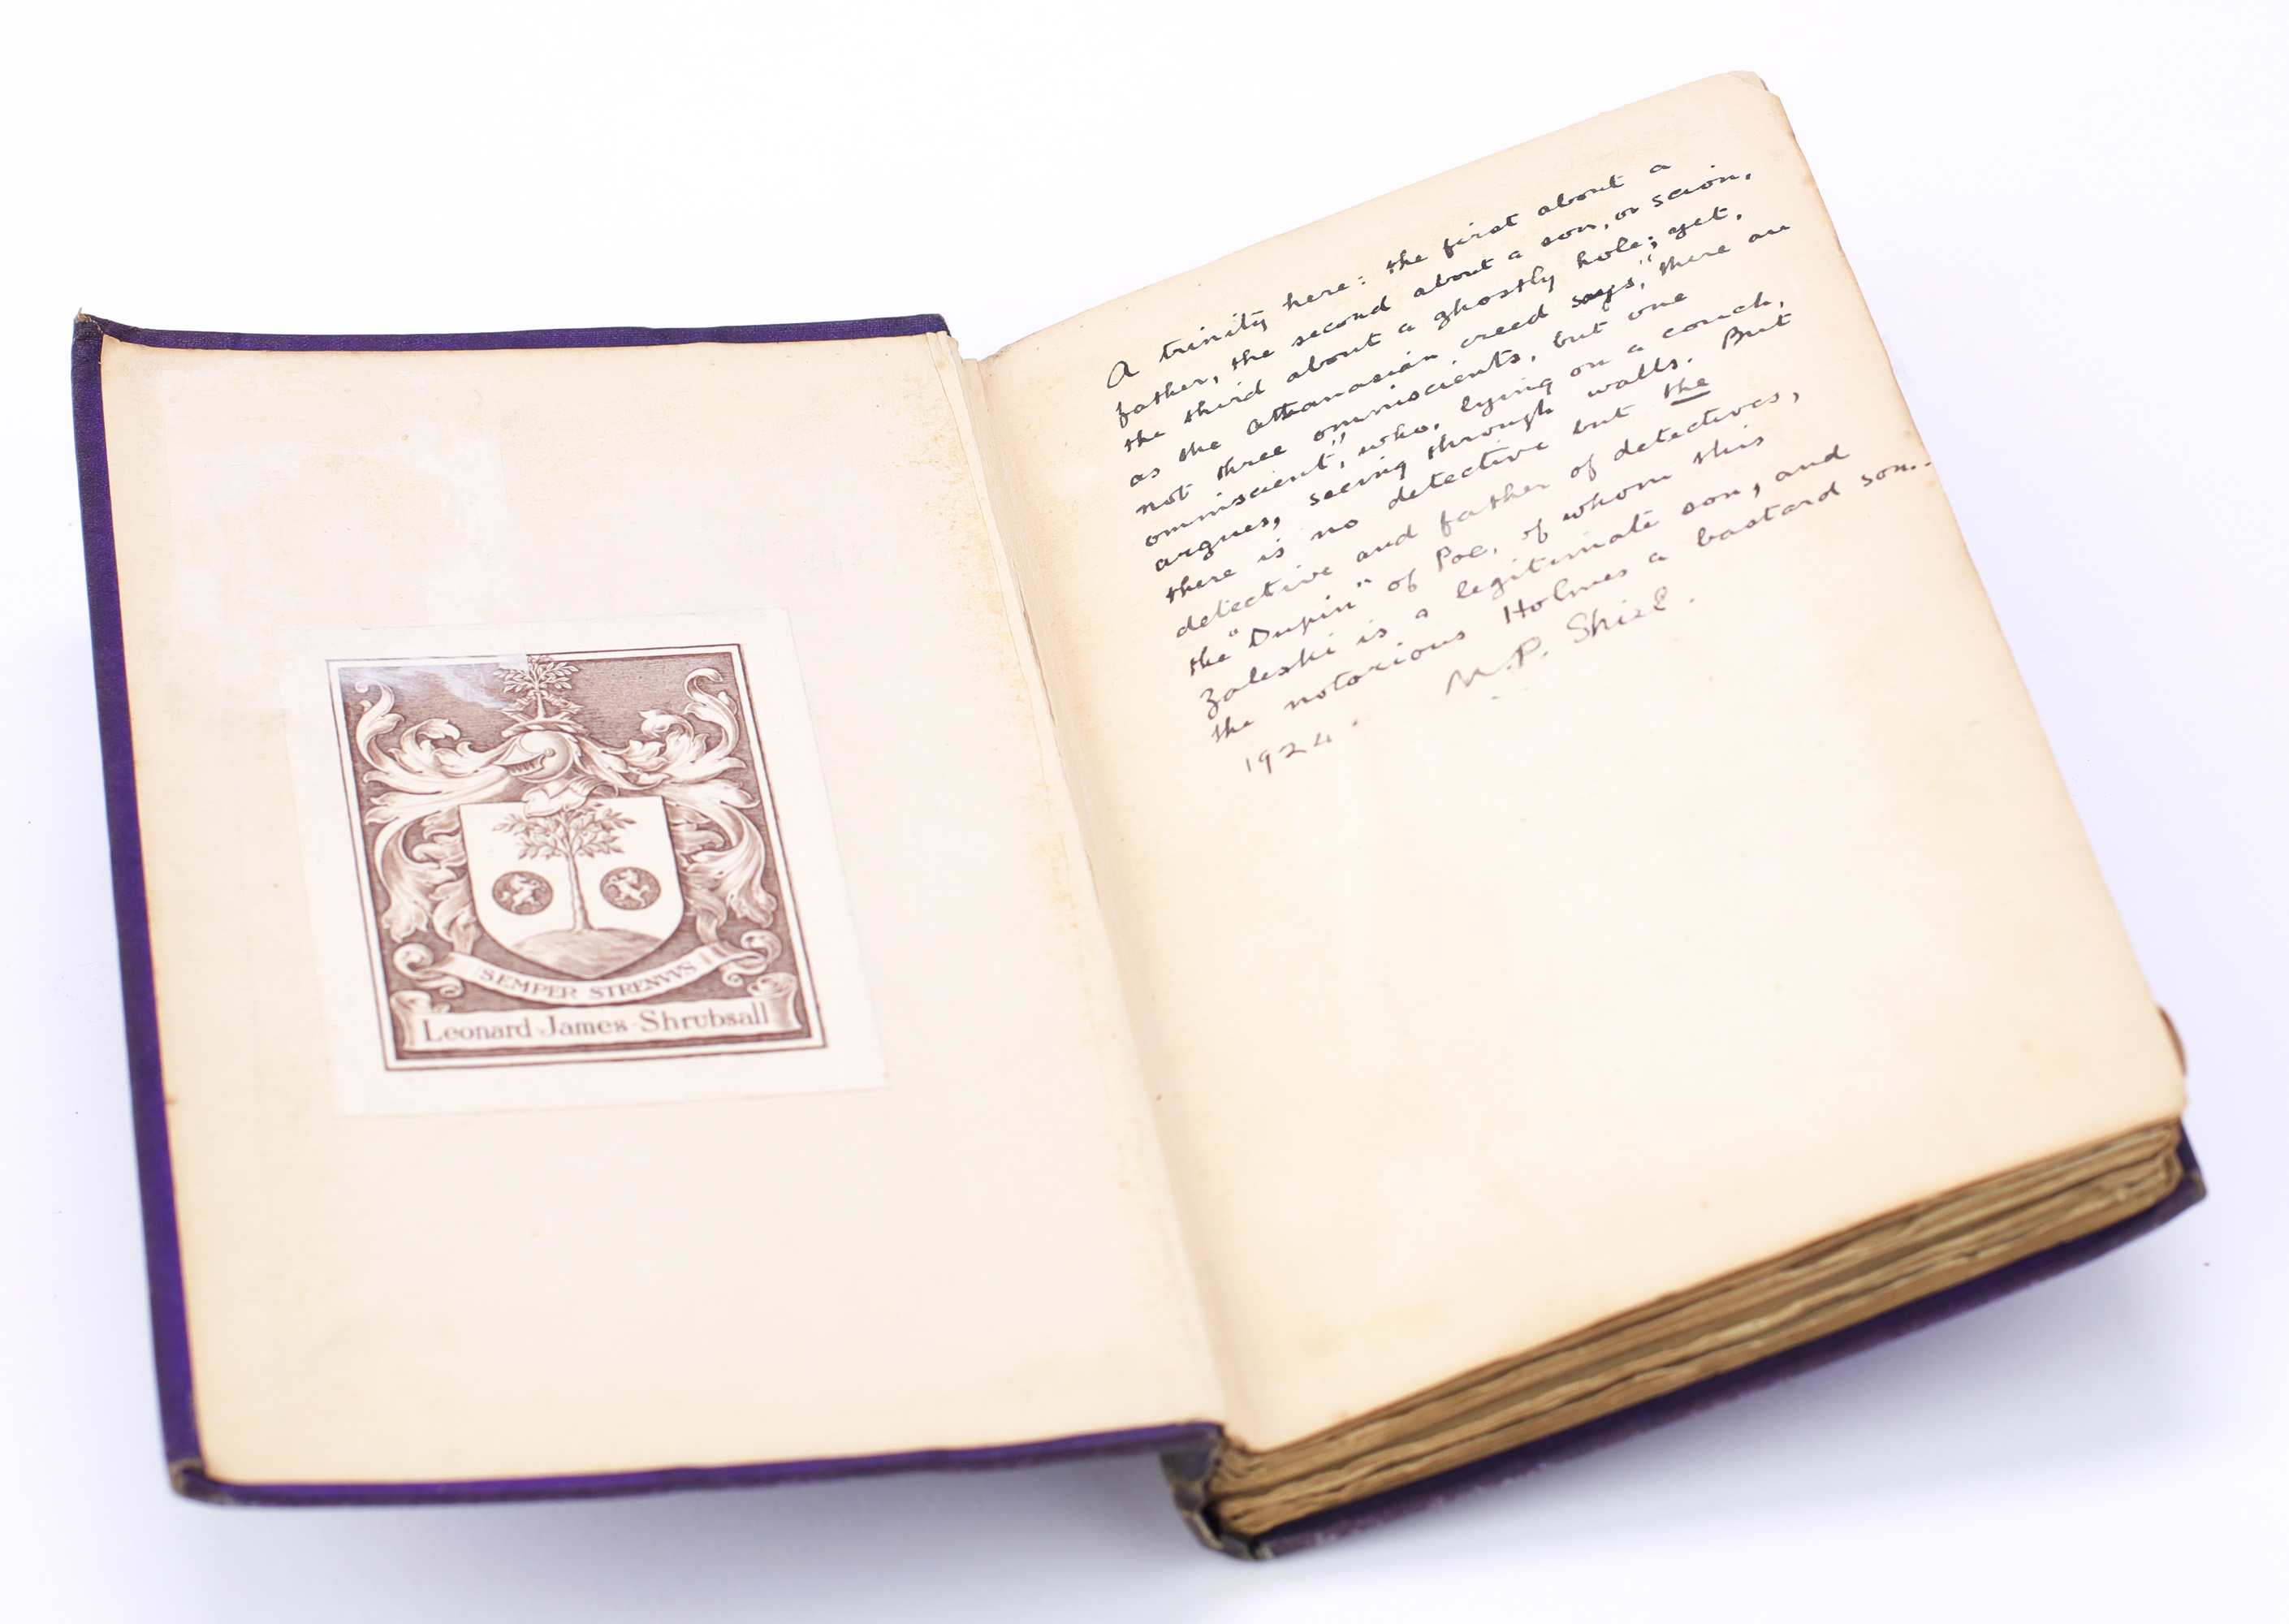 SEMPER STRENVVS
Leonard James Shrubsall
A trinity here: the first about a
father, the second about a son, or scion,
the third about a ghostly hole; yet,
as the Athanasian creed says, "there are
not three omniscients, but one
omniscient," who, lying on a couch,
argues, seeing through walls. But
there is no detective but the
detective and father of detectives,
the "Dupin" of Poe, of whom this
Zaleski is a legitimate son, and
the notorious Holmes a bastard son.
M.P. Shiel.
1924.